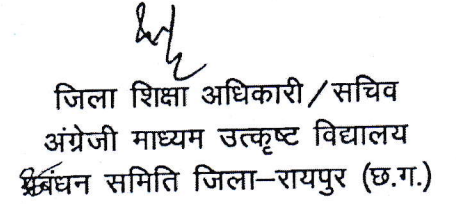 जिला शिक्षा अधिकारी/सचिव
अंग्रेजी माध्यम उत्कृष्ट विद्यालय
प्रबंधन समिति जिला–रायपुर (छ.ग.)